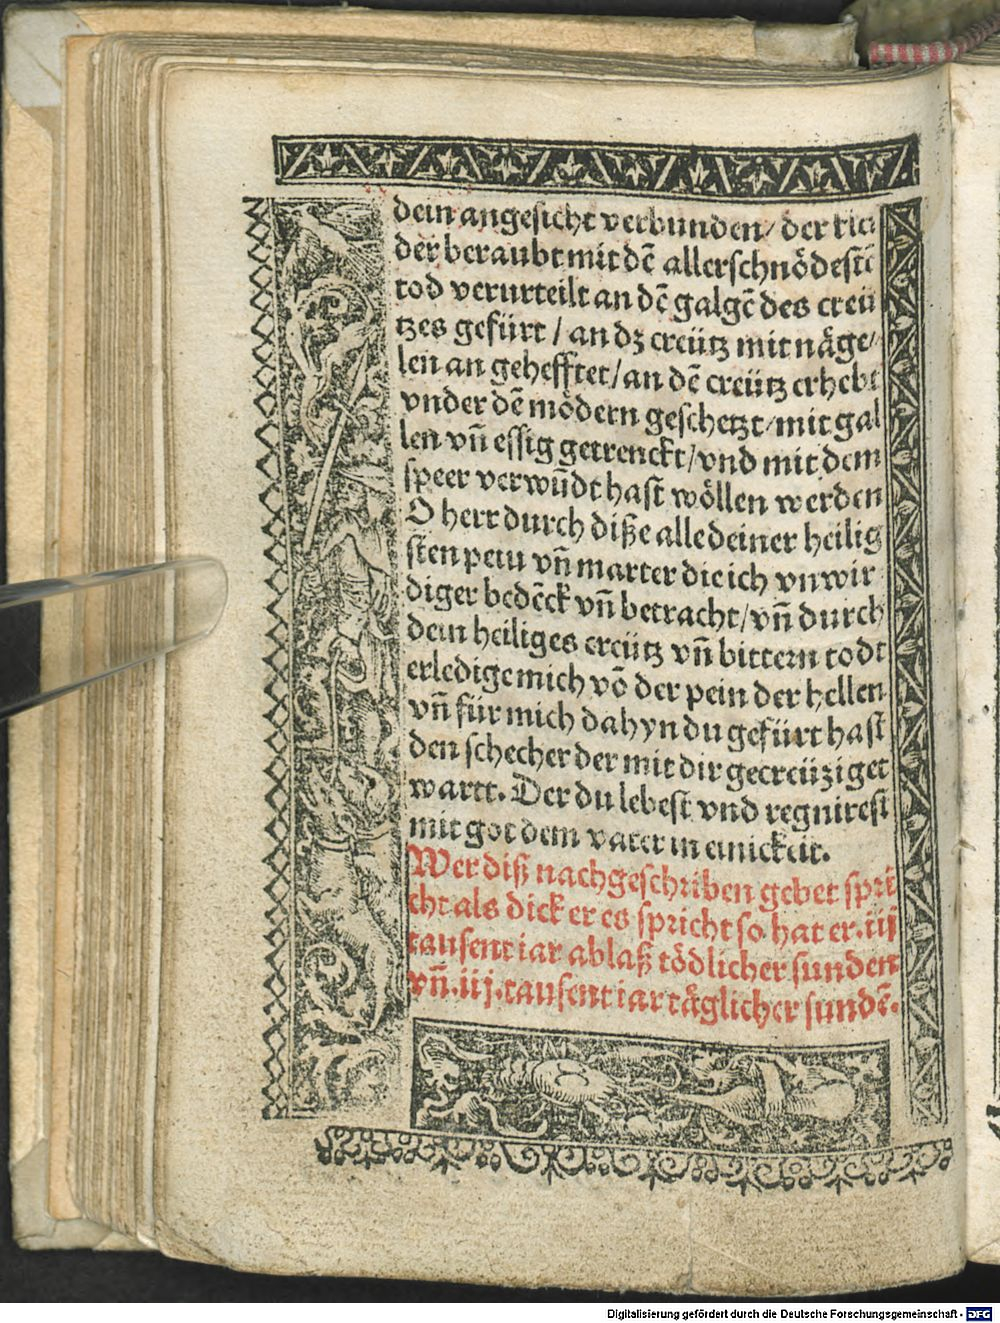 dein angesicht verbunden/ der klei
der beraubt mit dē allerschnödestē
tod verurteilt an dē galgē des creü
tzes gefürt / an dz creütz mit näge/
len an gehefftet/an dē creütz erhebt
vnder dē mödern geschetzt/mit gal
len vñ essig getrenckt/vnd mit dem
speer verwūdt hast wöllen werden
O herr durch diße alle deiner heilig
sten pein vñ marter die ich vnwir
diger bedēck vñ betracht/vñ durch
dein heiliges creütz vñ bittern todt
erledige mich vō der pein der hellen
vñ für mich dahyn du gefürt hast
den schecher der mit dir gecreüziget
wartt. Der du lebest vnd regnirest
mit got dem vater in einickeit.
Wer diß nachgeschriben gebet spri
cht als dick er es spricht so hat er .iij
tausent iar ablaß tödlicher sunden
vñ .iij. tausent iar täglicher sundē.
Digitalisierung gefördert durch die Deutsche Forschungsgemeinschaft - DFG